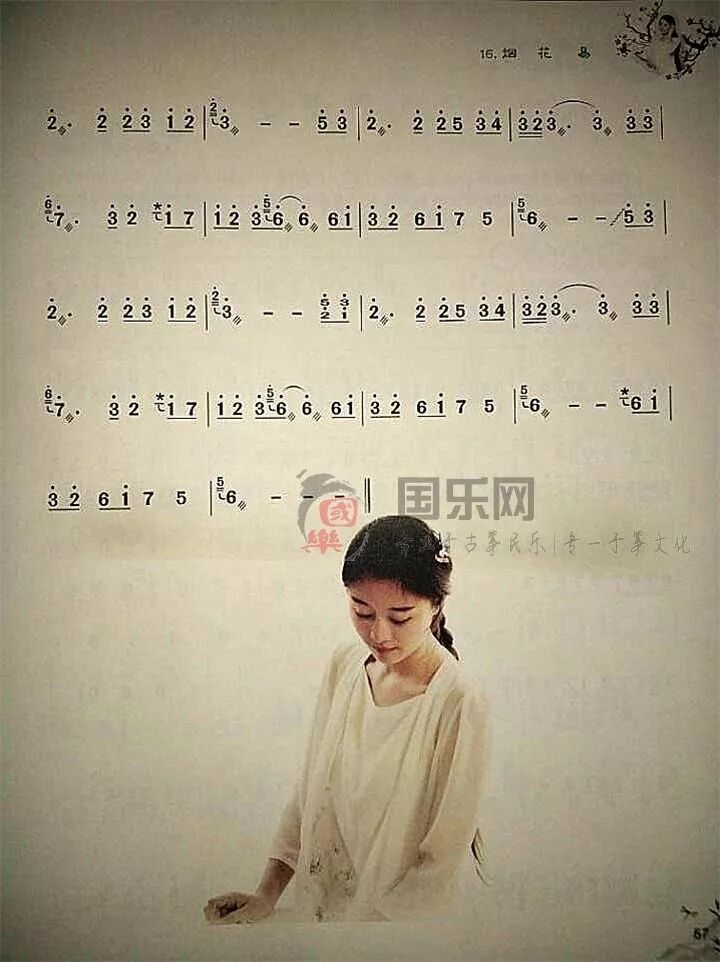 16.烟 花 易
2· 2 23 12 | 23 - - 53 | 2· 2 25 34 | 323· 3 33 |
67· 32 17 | 12 3566 61 | 32 61 7 5 | 56 - - 53 |
2· 2 23 12 | 23 - - 5321 | 2· 2 25 34 | 323· 3 33 |
67· 32 17 | 12 3566 61 | 32 61 7 5 | 56 - - 61 |
32 61 7 5 | 56 - - - ‖
國樂
国乐网
古筝民乐|专一于筝文化
67